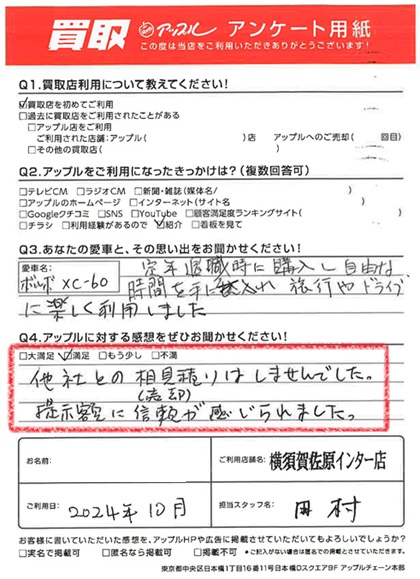 買取 アップル アンケート用紙
この度は当店をご利用いただきありがとうございます!
Q1.買取店利用について教えてください!
☑買取店を初めてご利用
□過去に買取店をご利用されたことがある
□アップル店をご利用
ご利用された店舗:アップル( )店 アップルへのご売却( 回目)
□その他の買取店( )
Q2.アップルをご利用になったきっかけは?(複数回答可)
□テレビCM □ラジオCM □新聞・雑誌(媒体名/ )
□アップルのホームページ □インターネット(サイト名 )
□Googleクチコミ □SNS □YouTube □顧客満足度ランキングサイト( )
□チラシ □利用経験があるので ☑紹介 □看板を見て
Q3.あなたの愛車と、その思い出をお聞かせください!
愛車名:
ボルボ XC-60
定年退職時に購入し自由な
時間を手に入れ 旅行やドライブ
に楽しく利用しました
Q4.アップルに対する感想をぜひお聞かせください!
□大満足 ☑満足 □もう少し □不満
他社との相見積りはしませんでした。
(売却)
提示額に信頼が感じられました。
お名前:
ご利用店舗名: 横須賀佐原インター店
ご利用日: 2024年10月
担当スタッフ名: 田村
お客様に書いていただいた感想を、アップルHPや広告に掲載させていただいてもよろしいでしょうか?
□実名で掲載可 □匿名なら掲載可 □掲載不可 *ご記入がない場合は匿名での掲載とさせていただきます。
東京都中央区日本橋1丁目16番11号日本橋Dスクエア9F アップルチェーン本部